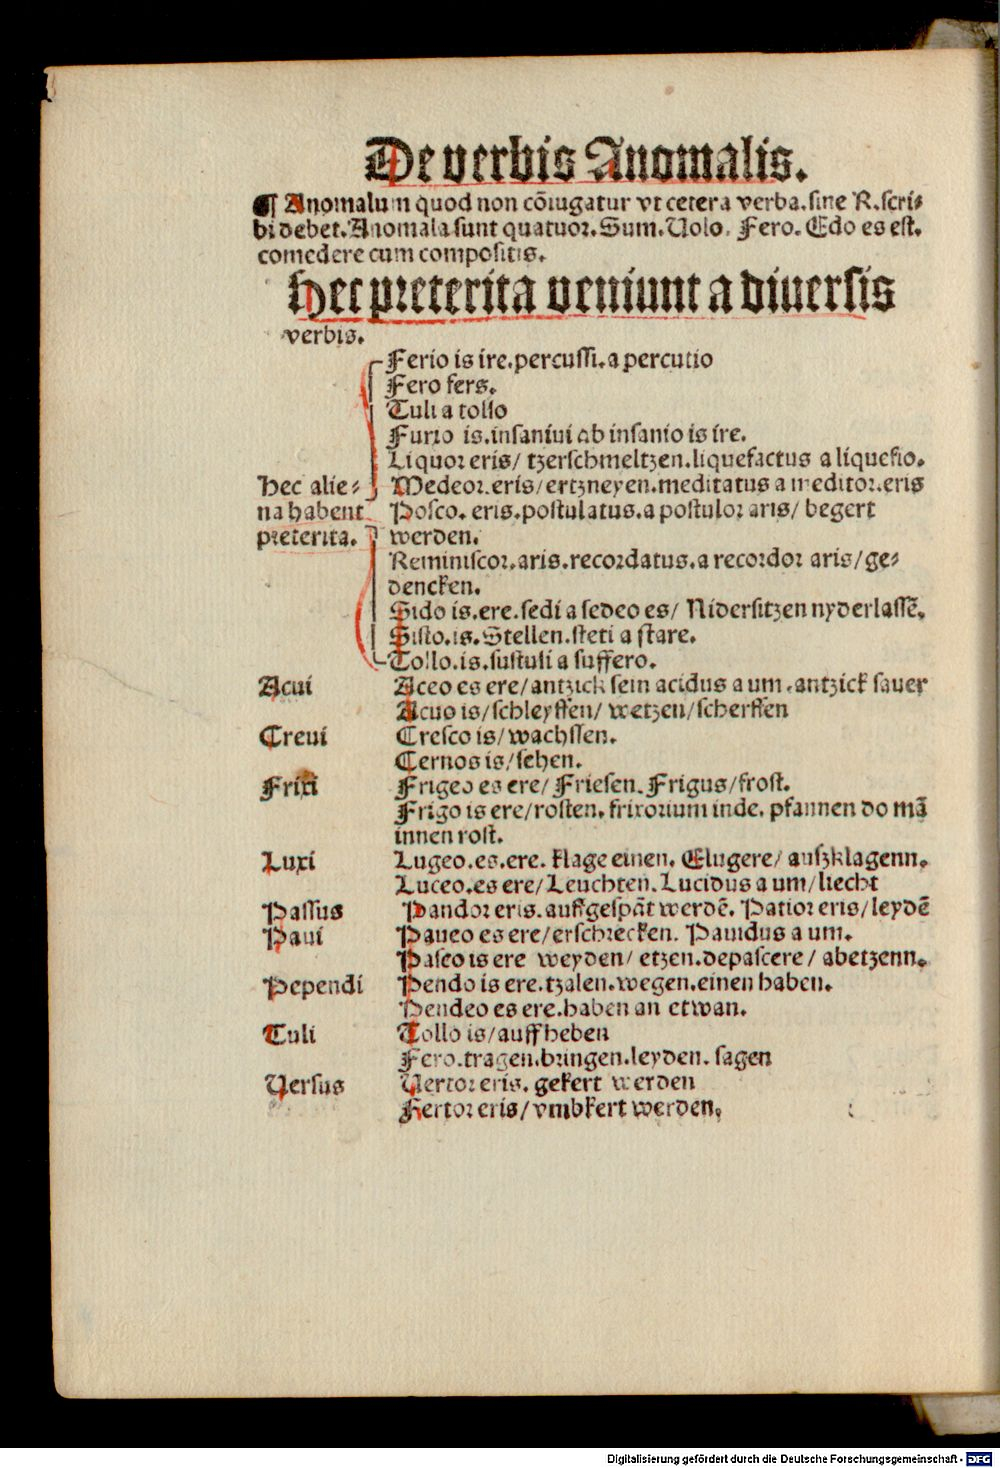 De verbis Anomalis.
¶ Anomalum quod non cōiugatur vt cetera verba. sine R. scri-
bi debet. Anomala sunt quatuor. Sum. Uolo. Fero. Edo es est.
comedere cum compositis.
Hec preterita veniunt a diuersis
verbis.
Ferio is ire. percussi. a percutio
Fero fers.
Tuli a tollo
Furio is. insaniui ab insanio is ire.
Liquor eris/ tzerschmeltzen. liquefactus a liquefio.
Hec alie- Medeor. eris/ ertzneyen. meditatus a meditor. eris
na habent Posco. eris. postulatus. a postulor aris/ begert
preterita. werden.
Reminiscor. aris. recordatus. a recordor aris/ ge-
dencken.
Sido is. ere. sedi a sedeo es/ Nidersitzen nyderlassē.
Sisto. is. Stellen. steti a stare.
Tollo. is. sustuli a suffero.
Acui Aceo es ere/ antzick sein acidus a um. antzick sauer
Acuo is/ schleyffen/ wetzen/ scherffen
Creui Cresco is/ wachssen.
Cernos is/ sehen.
Frixi Frigeo es ere/ Friesen. Frigus/ frost.
Frigo is ere/ rosten. frixorium inde. pfannen do mā
innen rost.
Luxi Lugeo. es. ere. klage einen. Elugere/ auszklagenn.
Luceo. es ere/ Leuchten. Lucidus a um/ liecht
Passus Pandor eris. auffgespāt werdē. Patior eris/ leydē
Paui Paueo es ere/ erschrecken. Pauidus a um.
Pasco is ere weyden/ etzen. depascere/ abetzenn.
Pependi Pendo is ere. tzalen. wegen. einen haben.
Pendeo es ere. haben an etwan.
Tuli Tollo is/ auffheben
Fero. tragen. bringen. leyden. sagen
Uersus Uertor eris. gekert werden
Hertor eris/ vmbkert werden.
Digitalisierung gefördert durch die Deutsche Forschungsgemeinschaft - DFG